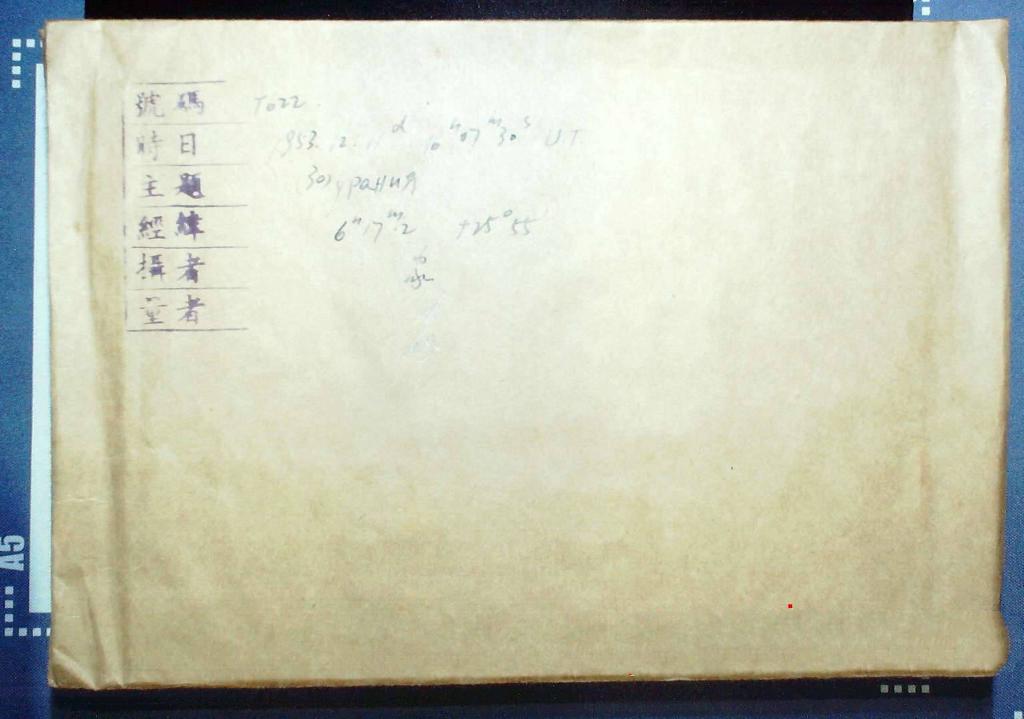 號碼 T022
時日 1953.12.11ᵈ 10ʰ07ᵐ30ˢ U.T.
主題 30) урания
經緯 6ʰ17ᵐ.2 +25°55
攝者
量者
A5